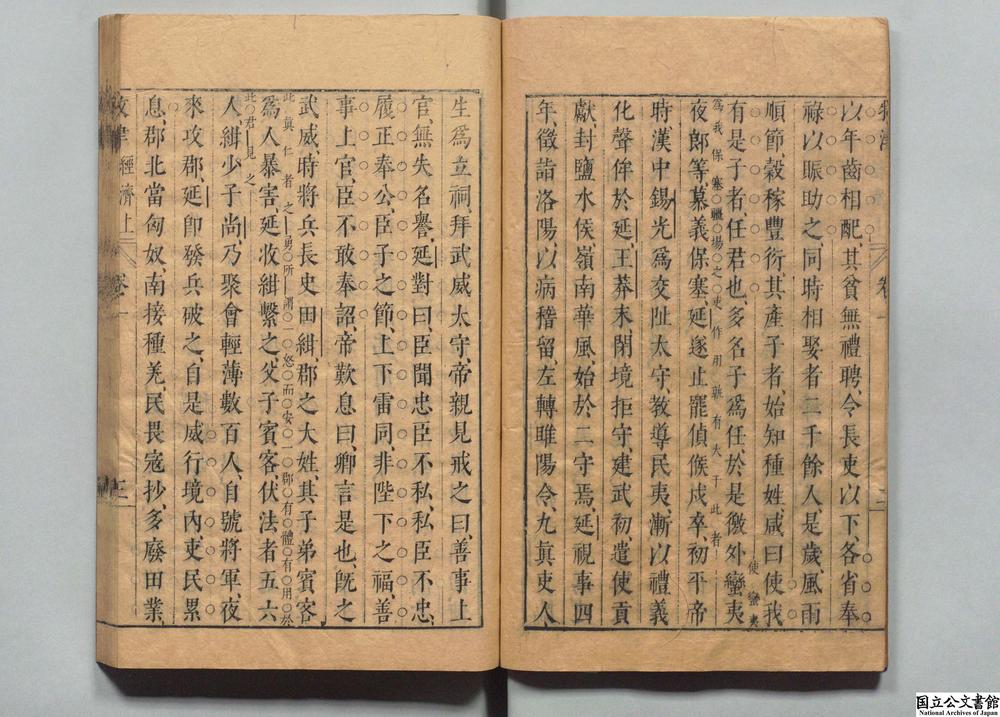 以年齒相配、其貧無禮聘、令長吏以下、各省奉
祿以賑助之、同時相娶者二千餘人、是歲、風雨
順節、穀稼豐衍、其產子者、始知種姓、咸曰、使我
有是子者、任君也、多名子爲任、於是徼外蠻夷
使蠻夷爲我保塞疆場之吏作用孰有大于此者
夜郎等慕義保塞、延遂止罷偵候戍卒、初平帝
時漢中錫光爲交阯太守、教導民夷、漸以禮義
化聲侔於延、王莽末、閉境拒守、建武初、遣使貢
獻封鹽水侯、嶺南華風、始於二守焉、延視事四
年、徵詣洛陽、以病稽留、左轉睢陽令、九眞吏人
生爲立祠、拜武威太守、帝親見戒之曰、善事上
官、無失名譽、延對曰、臣聞忠臣不私、私臣不忠、
履正奉公、臣子之節、上下雷同、非陛下之福、善
事上官、臣不敢奉詔、帝歎息曰、卿言是也、既之
武威、時將兵長史田紺、郡之大姓、其子弟賓客
此眞仁者之勇所謂一怒而安一郡有體有用於此君見之
爲人暴害、延收紺繫之、父子賓客、伏法者五六
人、紺少子尚、乃聚會輕薄數百人、自號將軍、夜
來攻郡、延卽發兵破之、自是威行境內、吏民累
息、郡北當匈奴、南接種羌、民畏寇抄、多廢田業、
經濟上 卷一
国立公文書館
National Archives of Japan